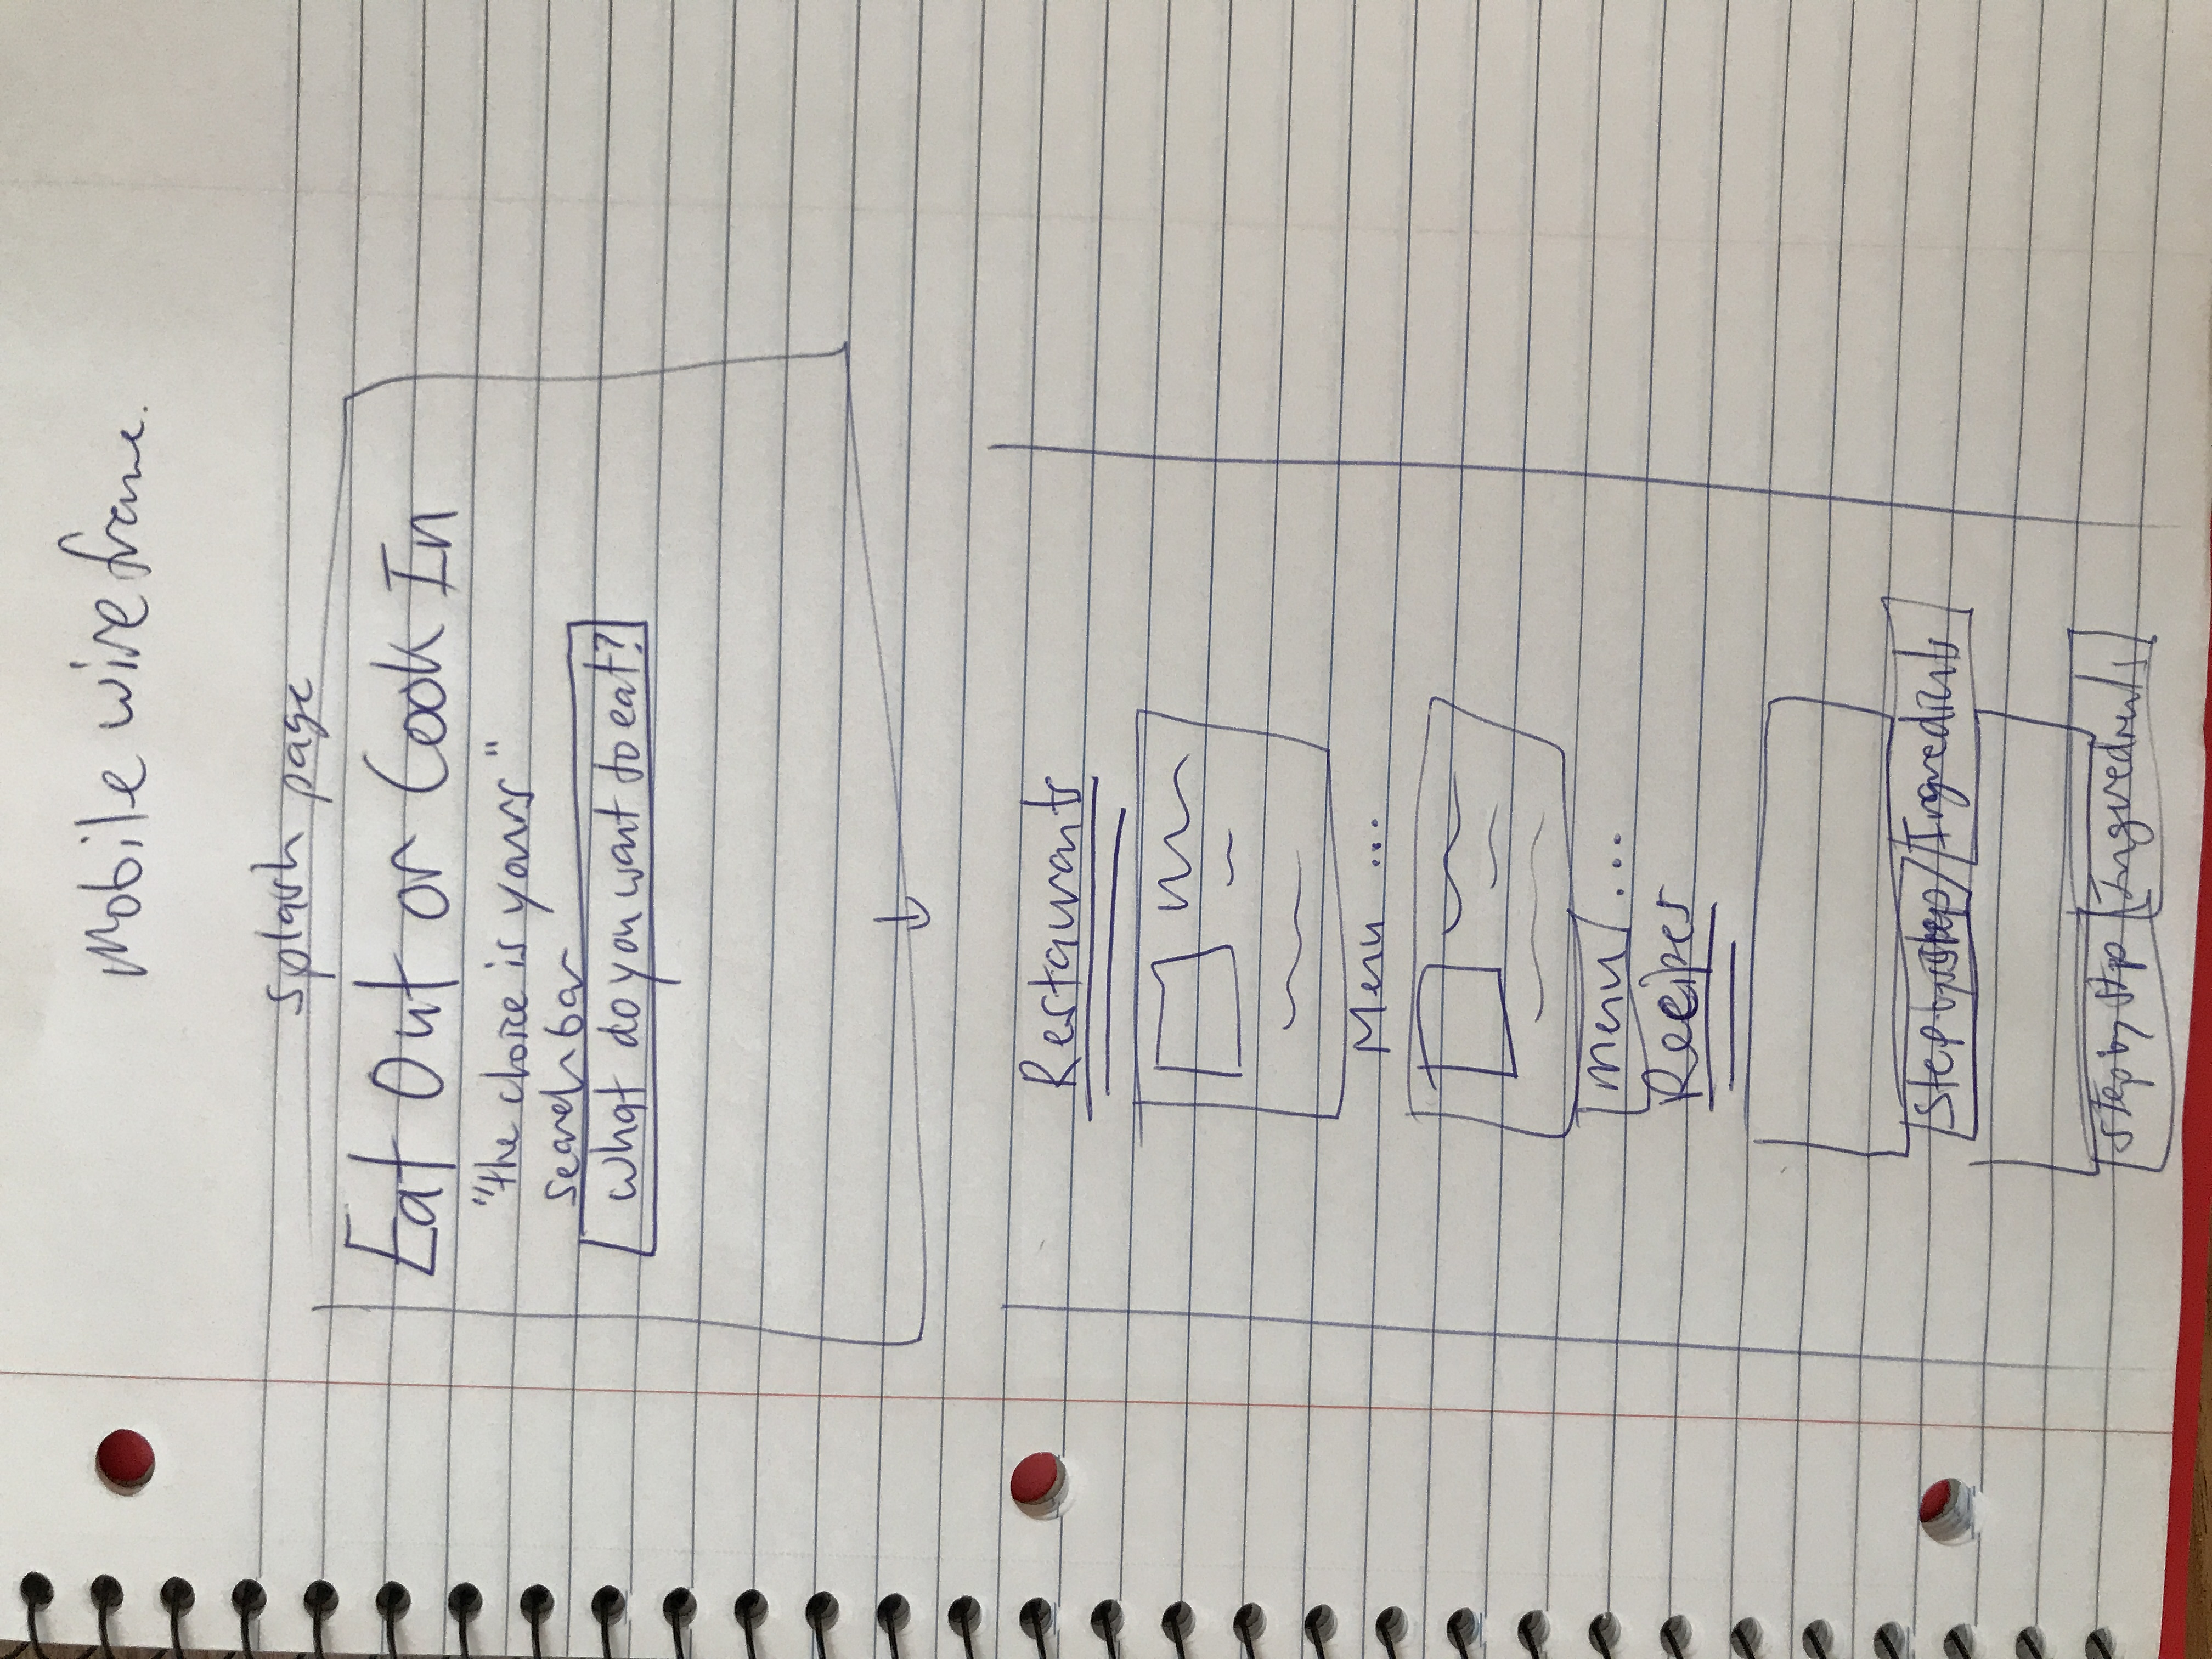 Mobile wireframe.
splash page
Eat Out or Cook In
"the choice is yours"
search bar
What do you want to eat?
Restaurants
Menu ...
Menu ...
Recipes
Step by step Ingredients
Step by step Ingredients